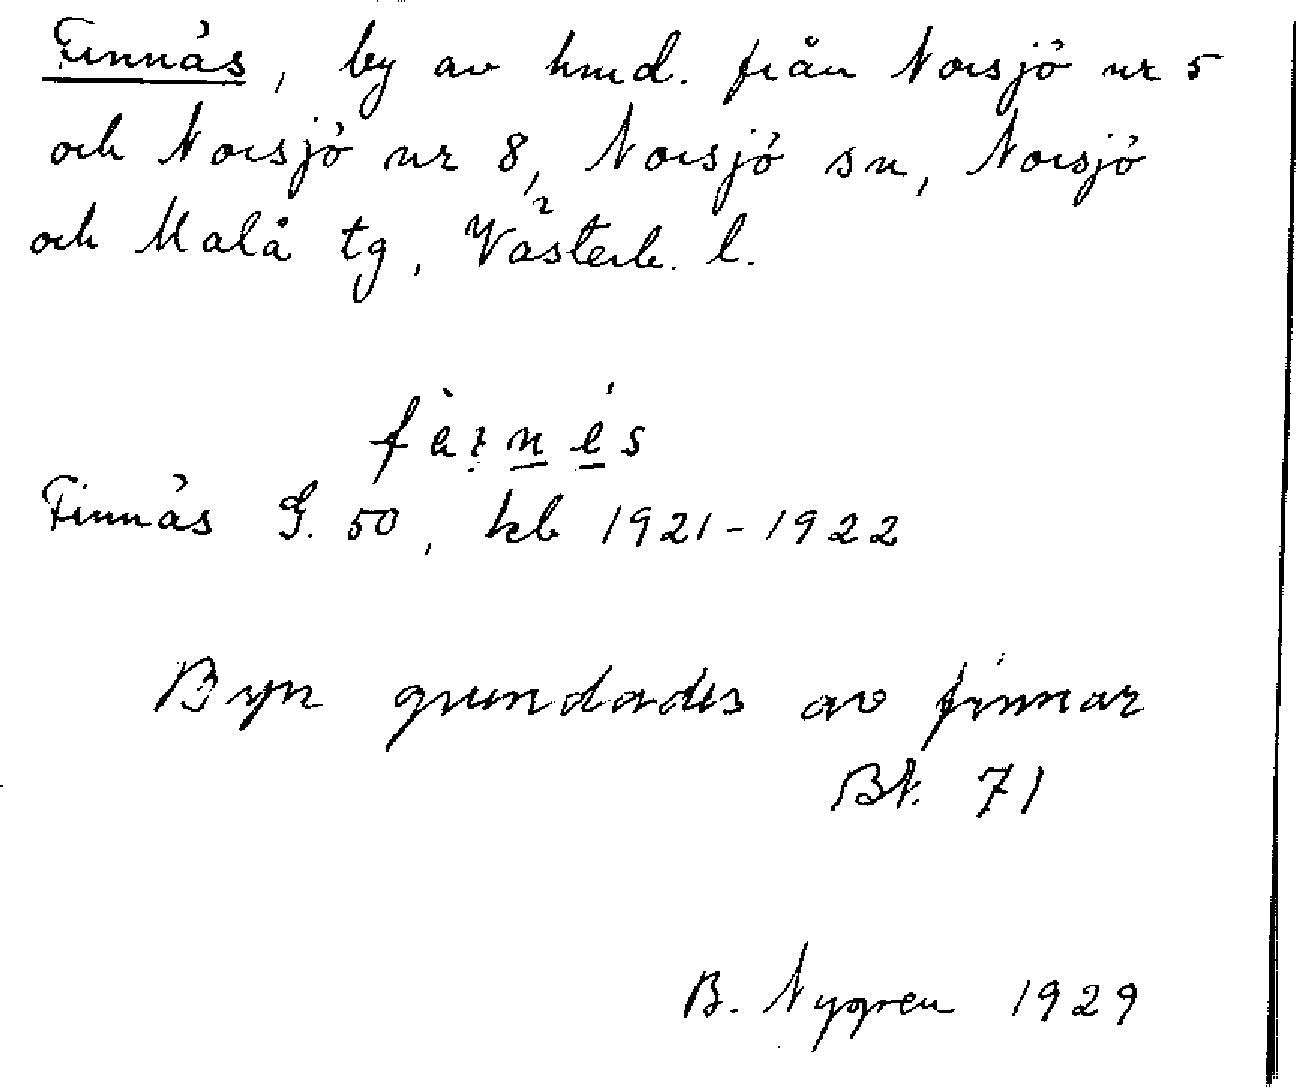 Finnäs, by av hmd. från Norsjö nr 5
och Norsjö nr 8, Norsjö sn, Norsjö
och Malå tg, Västerb. l.
Finnäs G. 50, kb 1921-1922
Byn grundades av finnar
Bt. 71
B. Nygren 1929